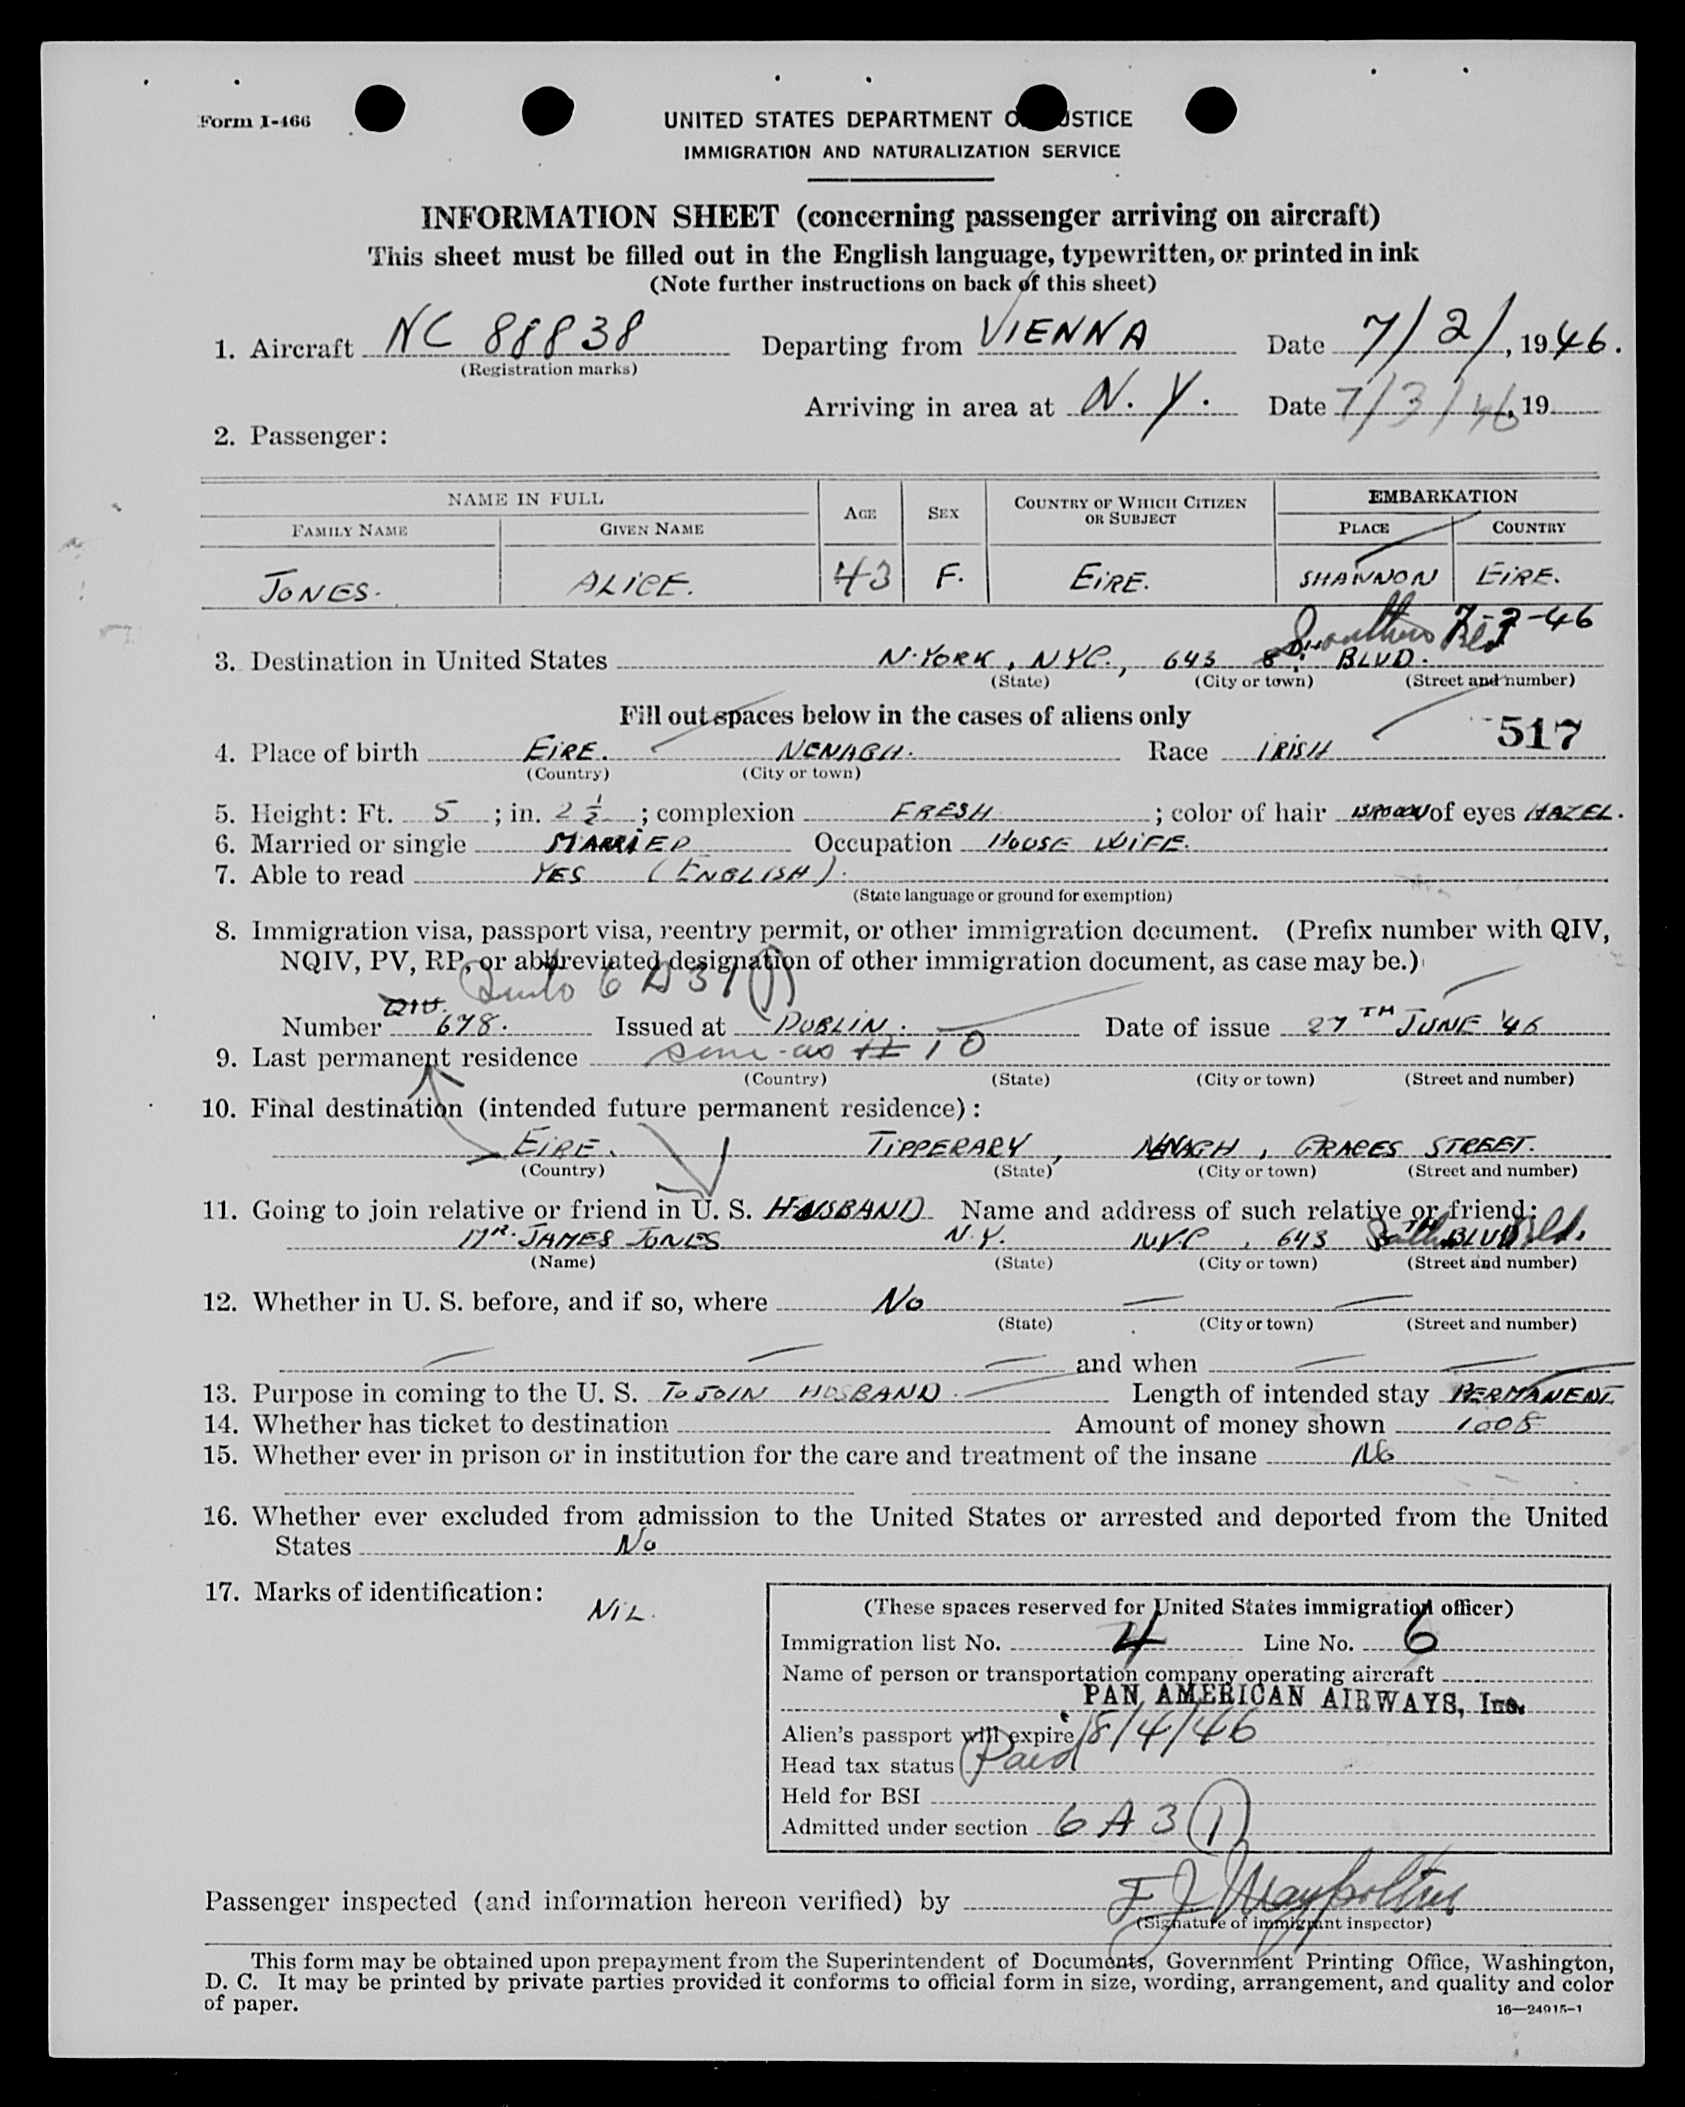 Form I-466
UNITED STATES DEPARTMENT O JUSTICE
IMMIGRATION AND NATURALIZATION SERVICE
INFORMATION SHEET (concerning passenger arriving on aircraft)
This sheet must be filled out in the English language, typewritten, or printed in ink
(Note further instructions on back of this sheet)
1. Aircraft NC 88838 Departing from VIENNA Date 7/2/, 1946.
(Registration marks)
Arriving in area at N.Y. Date 7/3/46, 19
2. Passenger:
NAME IN FULL AGE SEX COUNTRY OF WHICH CITIZEN OR SUBJECT EMBARKATION
FAMILY NAME GIVEN NAME PLACE COUNTRY
JONES. ALICE. 43 F. EIRE. SHANNON EIRE.
Southern Bld 7-2-46
3. Destination in United States N. YORK, NYC., 643 8TH BLVD.
(State) (City or town) (Street and number)
Fill out spaces below in the cases of aliens only
517
4. Place of birth EIRE. NENAGH. Race IRISH
(Country) (City or town)
5. Height: Ft. 5; in. 2 1/2; complexion FRESH; color of hair BROWN of eyes HAZEL.
6. Married or single MARRIED Occupation HOUSE WIFE.
7. Able to read YES (ENGLISH).
(State language or ground for exemption)
8. Immigration visa, passport visa, reentry permit, or other immigration document. (Prefix number with QIV,
NQIV, PV, RP, or abbreviated designation of other immigration document, as case may be.)
6 A 3 (1)
QIV.
Number 678. Issued at DUBLIN. Date of issue 27TH JUNE '46
9. Last permanent residence same as # 10
(Country) (State) (City or town) (Street and number)
10. Final destination (intended future permanent residence):
EIRE. TIPPERARY, NENAGH, GRACES STREET.
(Country) (State) (City or town) (Street and number)
11. Going to join relative or friend in U. S. HUSBAND Name and address of such relative or friend:
MR. JAMES JONES N.Y. NYC, 643 8TH BLVD Bld.
(Name) (State) (City or town) (Street and number)
12. Whether in U. S. before, and if so, where No
(State) (City or town) (Street and number)
and when
13. Purpose in coming to the U. S. TO JOIN HUSBAND. Length of intended stay PERMANENT
14. Whether has ticket to destination Amount of money shown 100$
15. Whether ever in prison or in institution for the care and treatment of the insane No
16. Whether ever excluded from admission to the United States or arrested and deported from the United
States No
17. Marks of identification: NIL.
(These spaces reserved for United States immigration officer)
Immigration list No. 4 Line No. 6
Name of person or transportation company operating aircraft
PAN AMERICAN AIRWAYS, Inc.
Alien's passport will expire 8/4/46
Head tax status Paid
Held for BSI
Admitted under section 6 A 3 (1)
Passenger inspected (and information hereon verified) by
(Signature of immigrant inspector)
This form may be obtained upon prepayment from the Superintendent of Documents, Government Printing Office, Washington,
D. C. It may be printed by private parties provided it conforms to official form in size, wording, arrangement, and quality and color
of paper.
16—24915-1